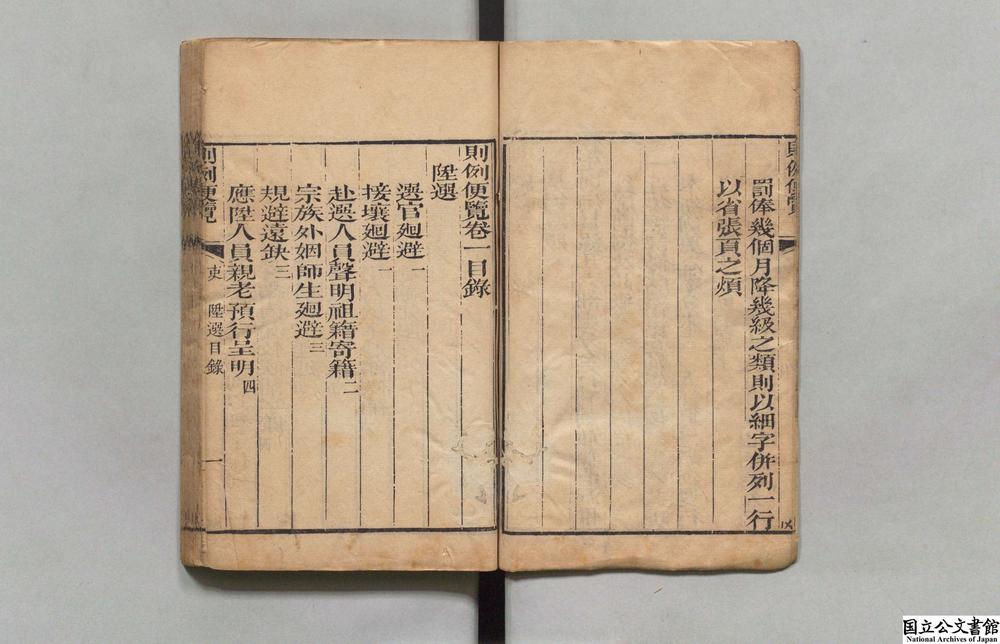 則例便覽
罰俸幾個月降幾級之類則以細字併列一行
以省張頁之煩
則例便覽卷一目錄
陞選
選官廻避一
接壤廻避一
赴選人員聲明祖籍寄籍二
宗族外姻師生廻避三
規避遠缺三
應陞人員親老預行呈明四
則例便覽
吏 陞選目錄
一
国立公文書館
National Archives of Japan